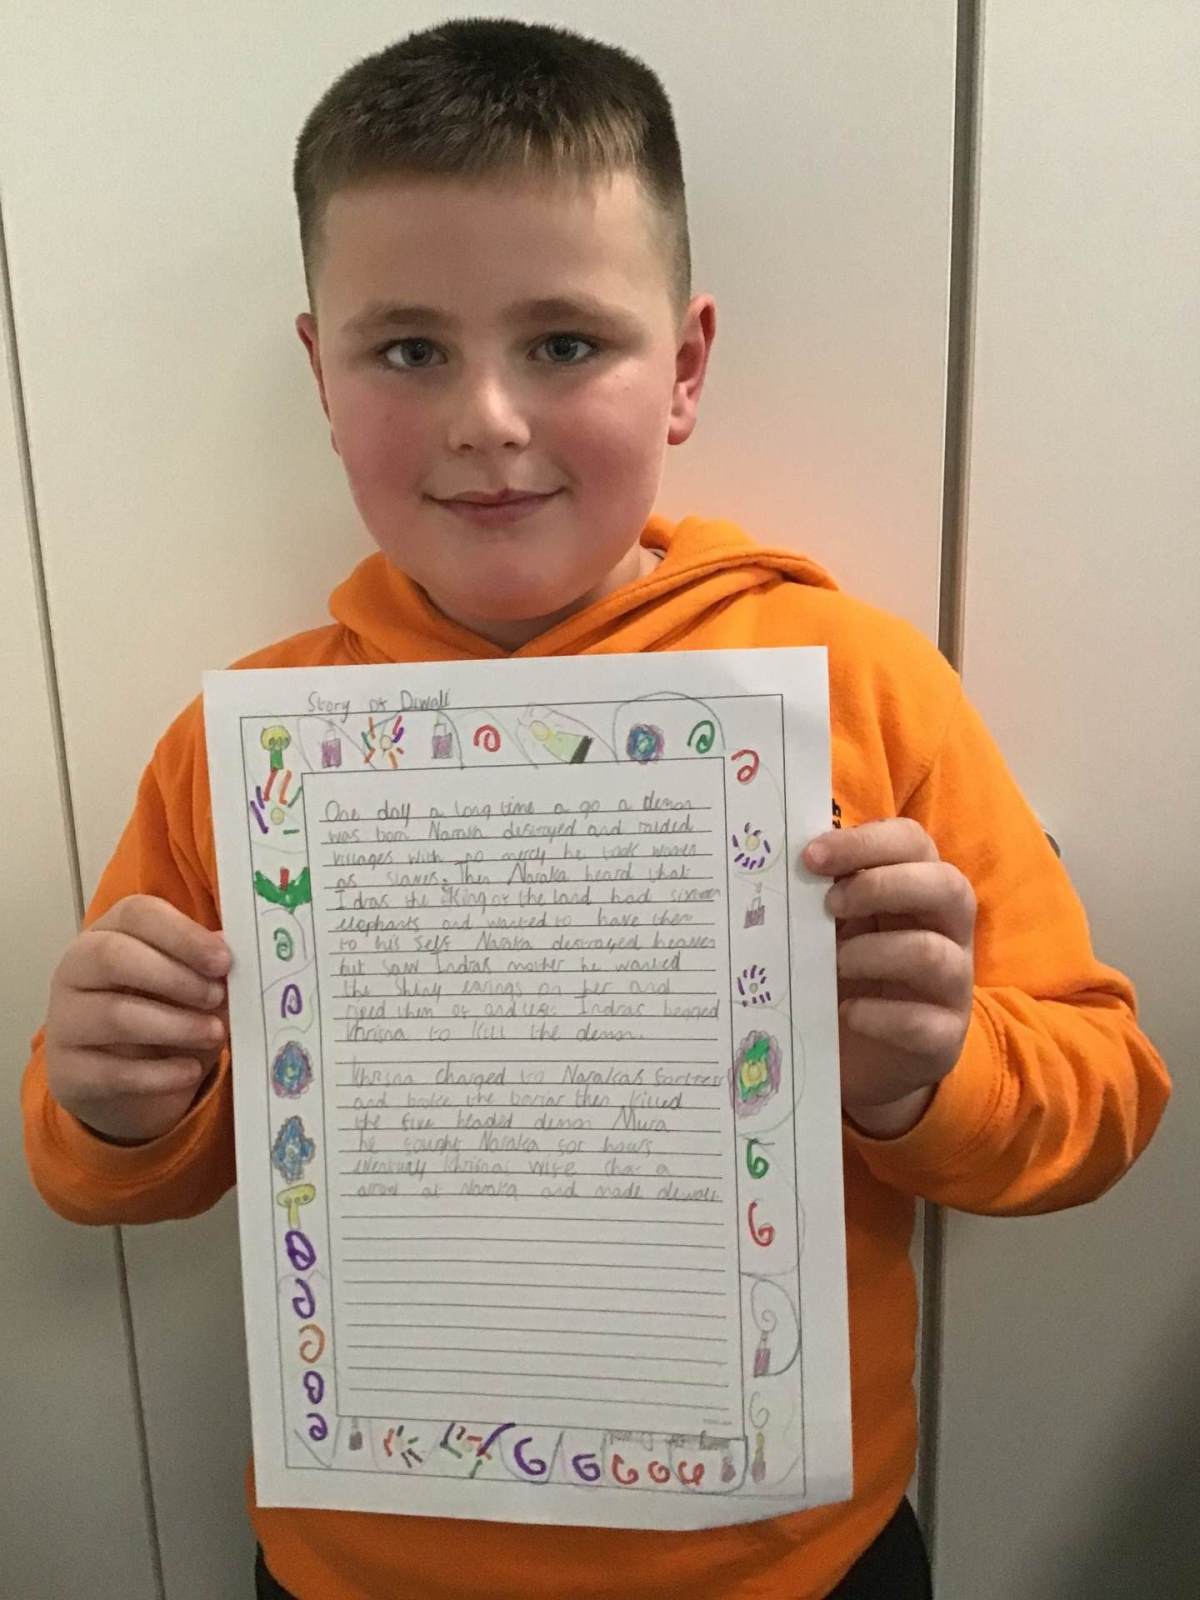 Story of Diwali
One day a long time a go a demon
was born Naraka destroyed and raided
villages with no mercy he took women
as slaves. Then Naraka heard that
Idras the King of the land had sixteen
elephants and wanted to have them
to his self Naraka destroyed heaven
but saw Indras mother he wanted
the shiny earings on her and
riped them of and left Indras begged
Khrisna to kill the demon.
Khrisna charged to Narakas fortress
and broke the bariar then killed
the five headed demon Mura
he fought Naraka for hours
eventualy Khrisnas wife shot a
arrow at Naraka and made dewali